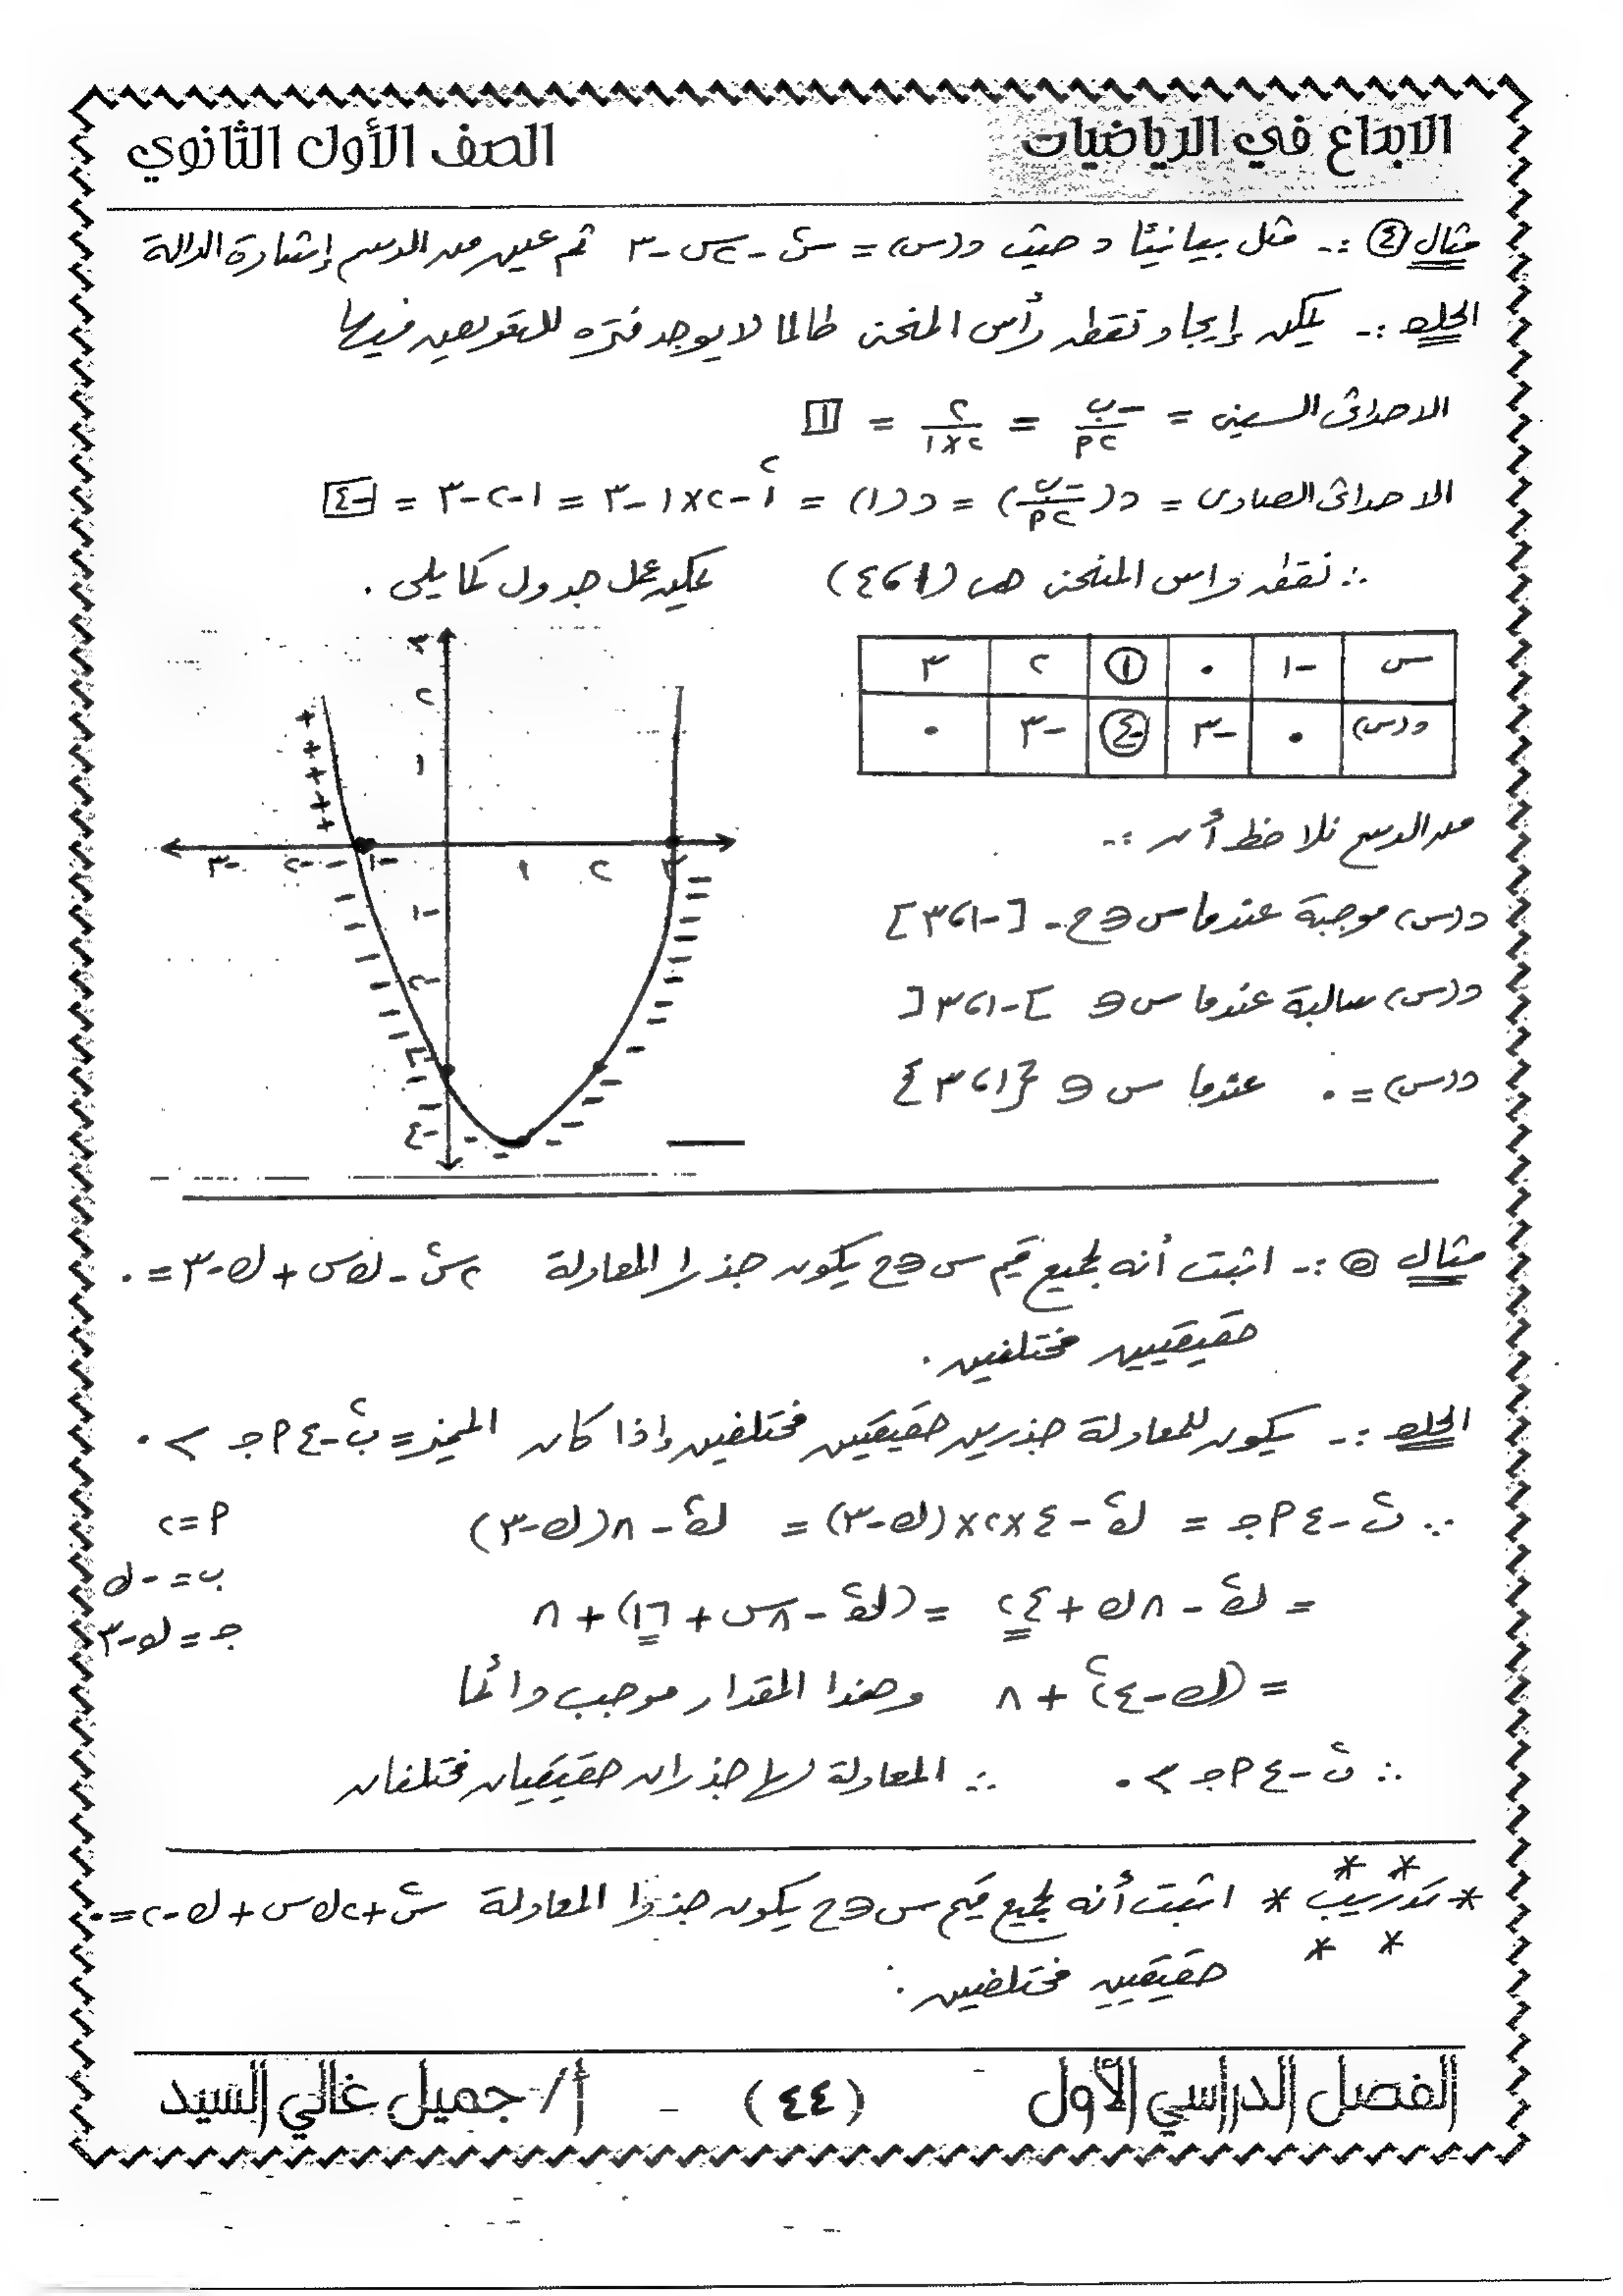 الابداع في الرياضيات
الصف الأول الثانوي
مثال (٤) :- مثل بيانيًا د حيث د(س) = س² - ٢س - ٣ ثم عين من الرسم إشارة الدالة
الحل :- يمكن إيجاد نقطه رأس المنحنى طالما لا يوجد فتره للتعويض فيها
الاحداثى السينى = -ب/٢أ = ٢/٢×١ = ١
الاحداثى الصادى = د(-ب/٢أ) = د(١) = ١² - ٢×١ - ٣ = ١-٢-٣ = -٤
∴ نقطه راس المنحنى هى (١، ٤) يمكن عمل جدول كما يلى .
س -١ ٠ ١ ٢ ٣
د(س) ٠ -٣ -٤ -٣ ٠
٣
٢
١
-٣ -٢ -١ ١ ٢ ٣
-١
-٢
-٤
من الرسم نلاحظ أن :-
د(س) موجبة عندما س ∈ ح - [-١، ٣]
د(س) سالبة عندما س ∈ ]-١، ٣[
د(س) = ٠ عندما س ∈ {١، ٣}
مثال (٥) :- اثبت أنه لجميع قيم س ∈ ح يكون جذرا المعادلة ٢س² - ك س + ك - ٣ = ٠
حقيقيين مختلفين .
الحل :- يكون للمعادلة جذرين حقيقيين مختلفين إذا كان المميز = ب² - ٤أجـ > ٠
∵ ب² - ٤أجـ = ك² - ٤×٢×(ك-٣) = ك² - ٨(ك-٣)
أ = ٢
ب = -ك
جـ = ك-٣
= ك² - ٨ك + ٢٤ = (ك² - ٨س + ١٦) + ٨
= (ك-٤)² + ٨ وهذا المقدار موجب دائما
∴ ب² - ٤أجـ > ٠ ∴ المعادلة لها جذران حقيقيان مختلفان
* تدريب * اثبت أنه لجميع قيم س ∈ ح يكون جذرا المعادلة س² + ٢ك س + ك - ٢ = ٠
حقيقيين مختلفين .
الفصل الدراسي الأول
(٤٤)
أ/ جميل غالي السيد